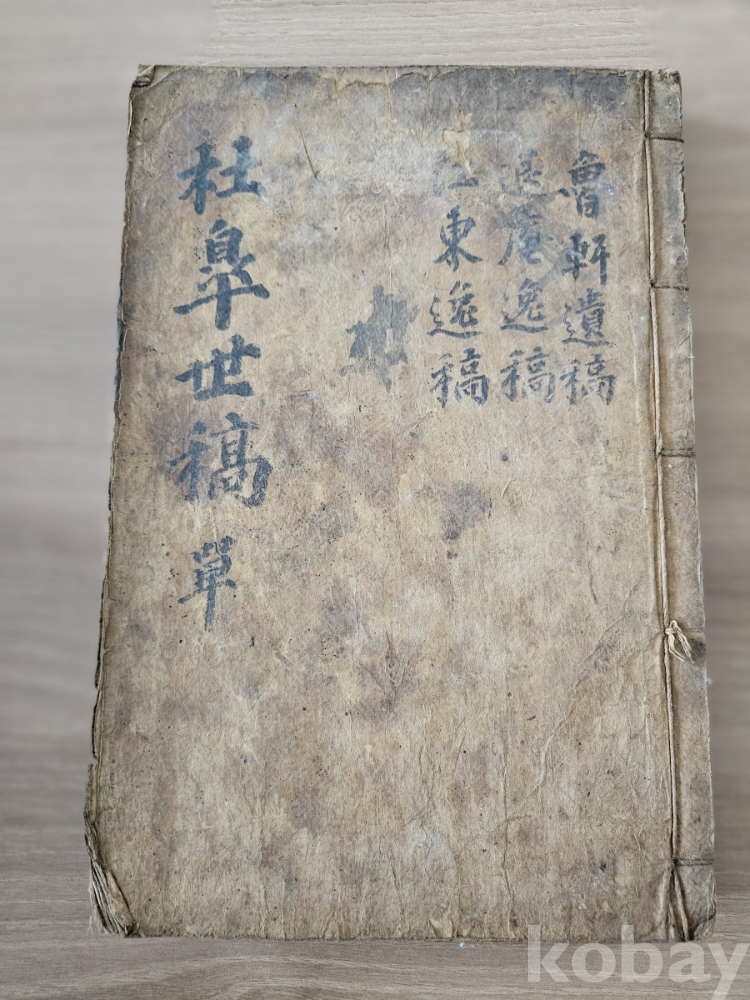 魯軒遺稿
退庵逸稿
江東逸稿
杜皐世稿 單
kobay